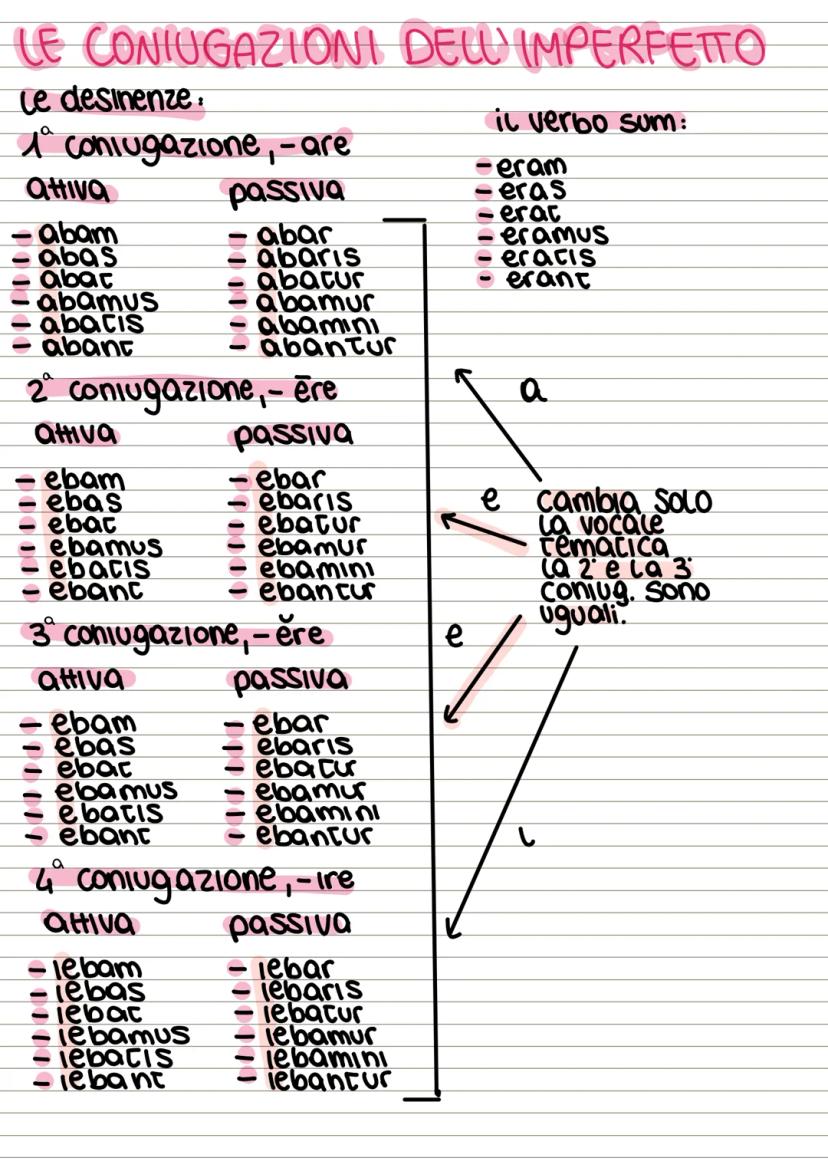 LE CONIUGAZIONI DELL'IMPERFETTO
Le desinenze:
1ª coniugazione, -are
attiva passiva
- abam - abar
- abas - abaris
- abat - abatur
- abamus - abamur
- abatis - abamini
- abant - abantur
il verbo sum:
- eram
- eras
- erat
- eramus
- eratis
- erant
2ª coniugazione, - ēre
attiva passiva
- ebam - ebar
- ebas - ebaris
- ebat - ebatur
- ebamus - ebamur
- ebatis - ebamini
- ebant - ebantur
3ª coniugazione, - ĕre
attiva passiva
- ebam - ebar
- ebas - ebaris
- ebat - ebatur
- ebamus - ebamur
- ebatis - ebamini
- ebant - ebantur
4ª coniugazione, -ire
attiva passiva
- iebam - iebar
- iebas - iebaris
- iebat - iebatur
- iebamus - iebamur
- iebatis - iebamini
- iebant - iebantur
a
e
e
i
cambia SOLO
la vocale
tematica
la 2ª e la 3ª
coniug. sono
uguali.